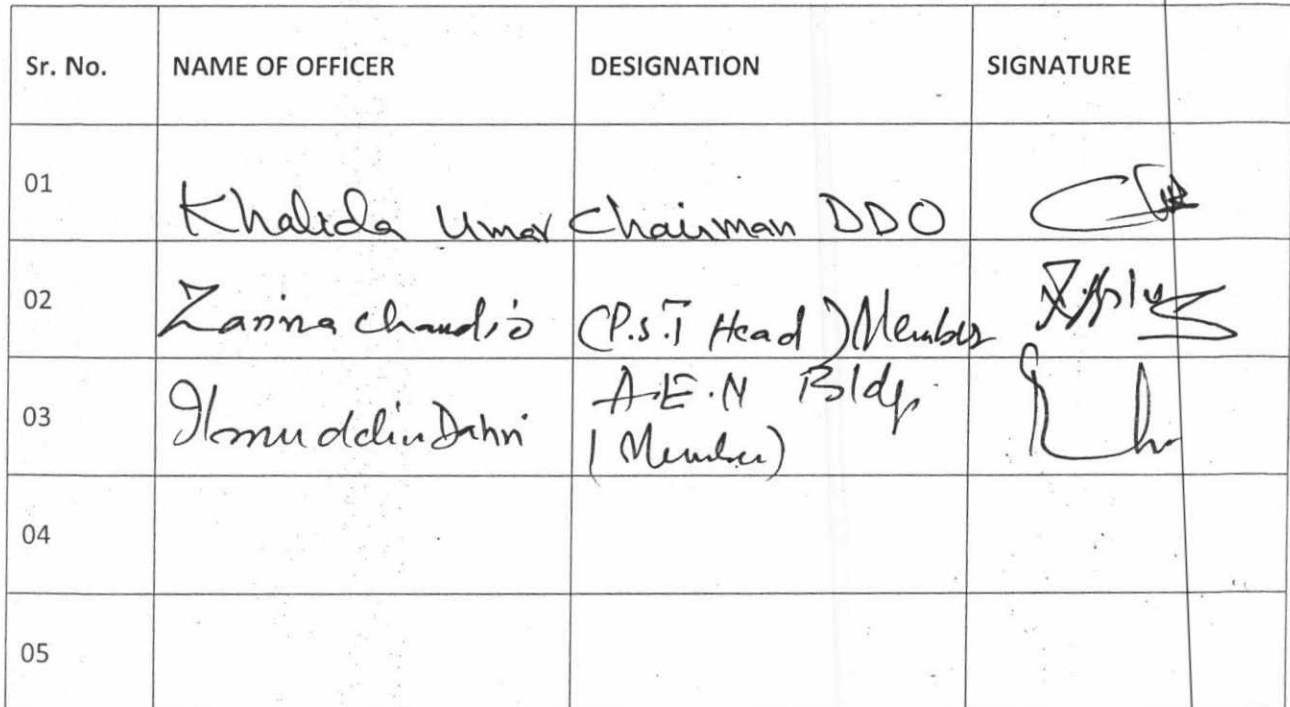 Sr. No. NAME OF OFFICER DESIGNATION SIGNATURE
01 Khalida Umar Chairman DDO
02 Zarina chandio (P.S.T Head) Member
03 Ilmuddin Dahri A.E.N Bldg.
(Member)
04
05